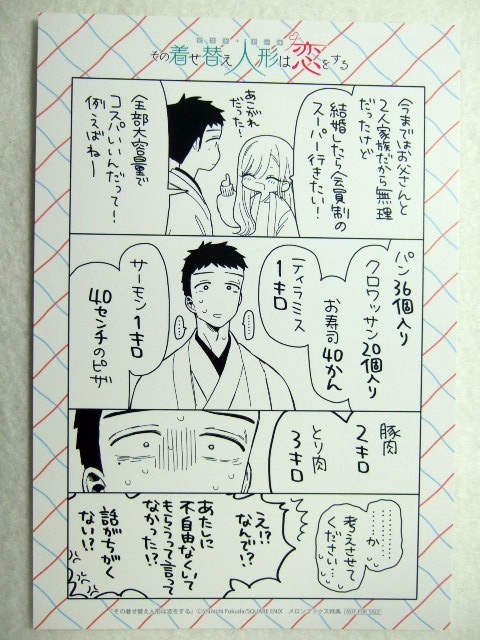 その着せ替え人形は恋をする
今まではお父さんと
2人家族だから無理
だったけど
結婚したら会員制の
スーパー行きたい!
あこがれ
だった〜
全部大容量で
コスパいいんだって!
例えばねー
パン36個入り
クロワッサン20個入り
お寿司40かん
ティラミス
1キロ
サーモン1キロ
40センチのピザ
豚肉
2キロ
とり肉
3キロ
………か
考えさせて
ください…
え!?
なんで!?
あたしに
不自由なくいて
もらうって言って
なかった!?
話がちがく
ない!?
『その着せ替え人形は恋をする』 ©Shinichi Fukuda/SQUARE ENIX メロンブックス特典 NOT FOR SALE